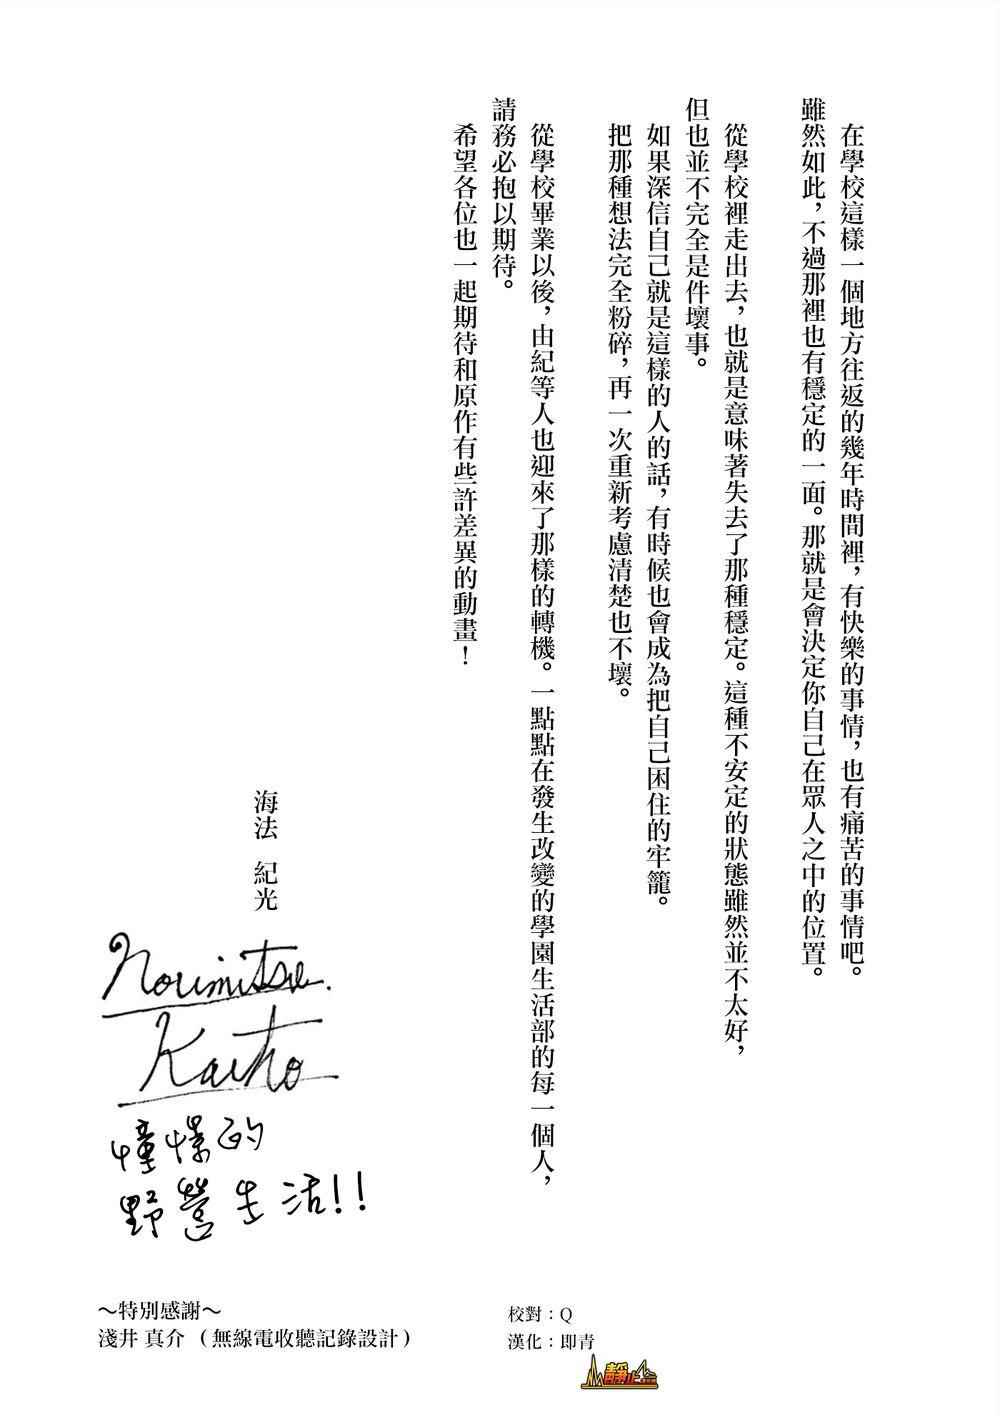 在學校這樣一個地方往返的幾年時間裡，有快樂的事情，也有痛苦的事情吧。
雖然如此，不過那裡也有穩定的一面。那就是會決定你自己在眾人之中的位置。
從學校裡走出去，也就是意味著失去了那種穩定。這種不安定的狀態雖然並不太好，
但也並不完全是件壞事。
如果深信自己就是這樣的人的話，有時候也會成為把自己困住的牢籠。
把那種想法完全粉碎，再一次重新考慮清楚也不壞。
從學校畢業以後，由紀等人也迎來了那樣的轉機。一點點在發生改變的學園生活部的每一個人，
請務必抱以期待。
希望各位也一起期待和原作有些許差異的動畫！
海法 紀光
Norimitsu
Kaiho
憧憬的
野營生活!!
～特別感謝～
淺井 真介（無線電收聽記錄設計）
校對：Q
漢化：即青
靜止